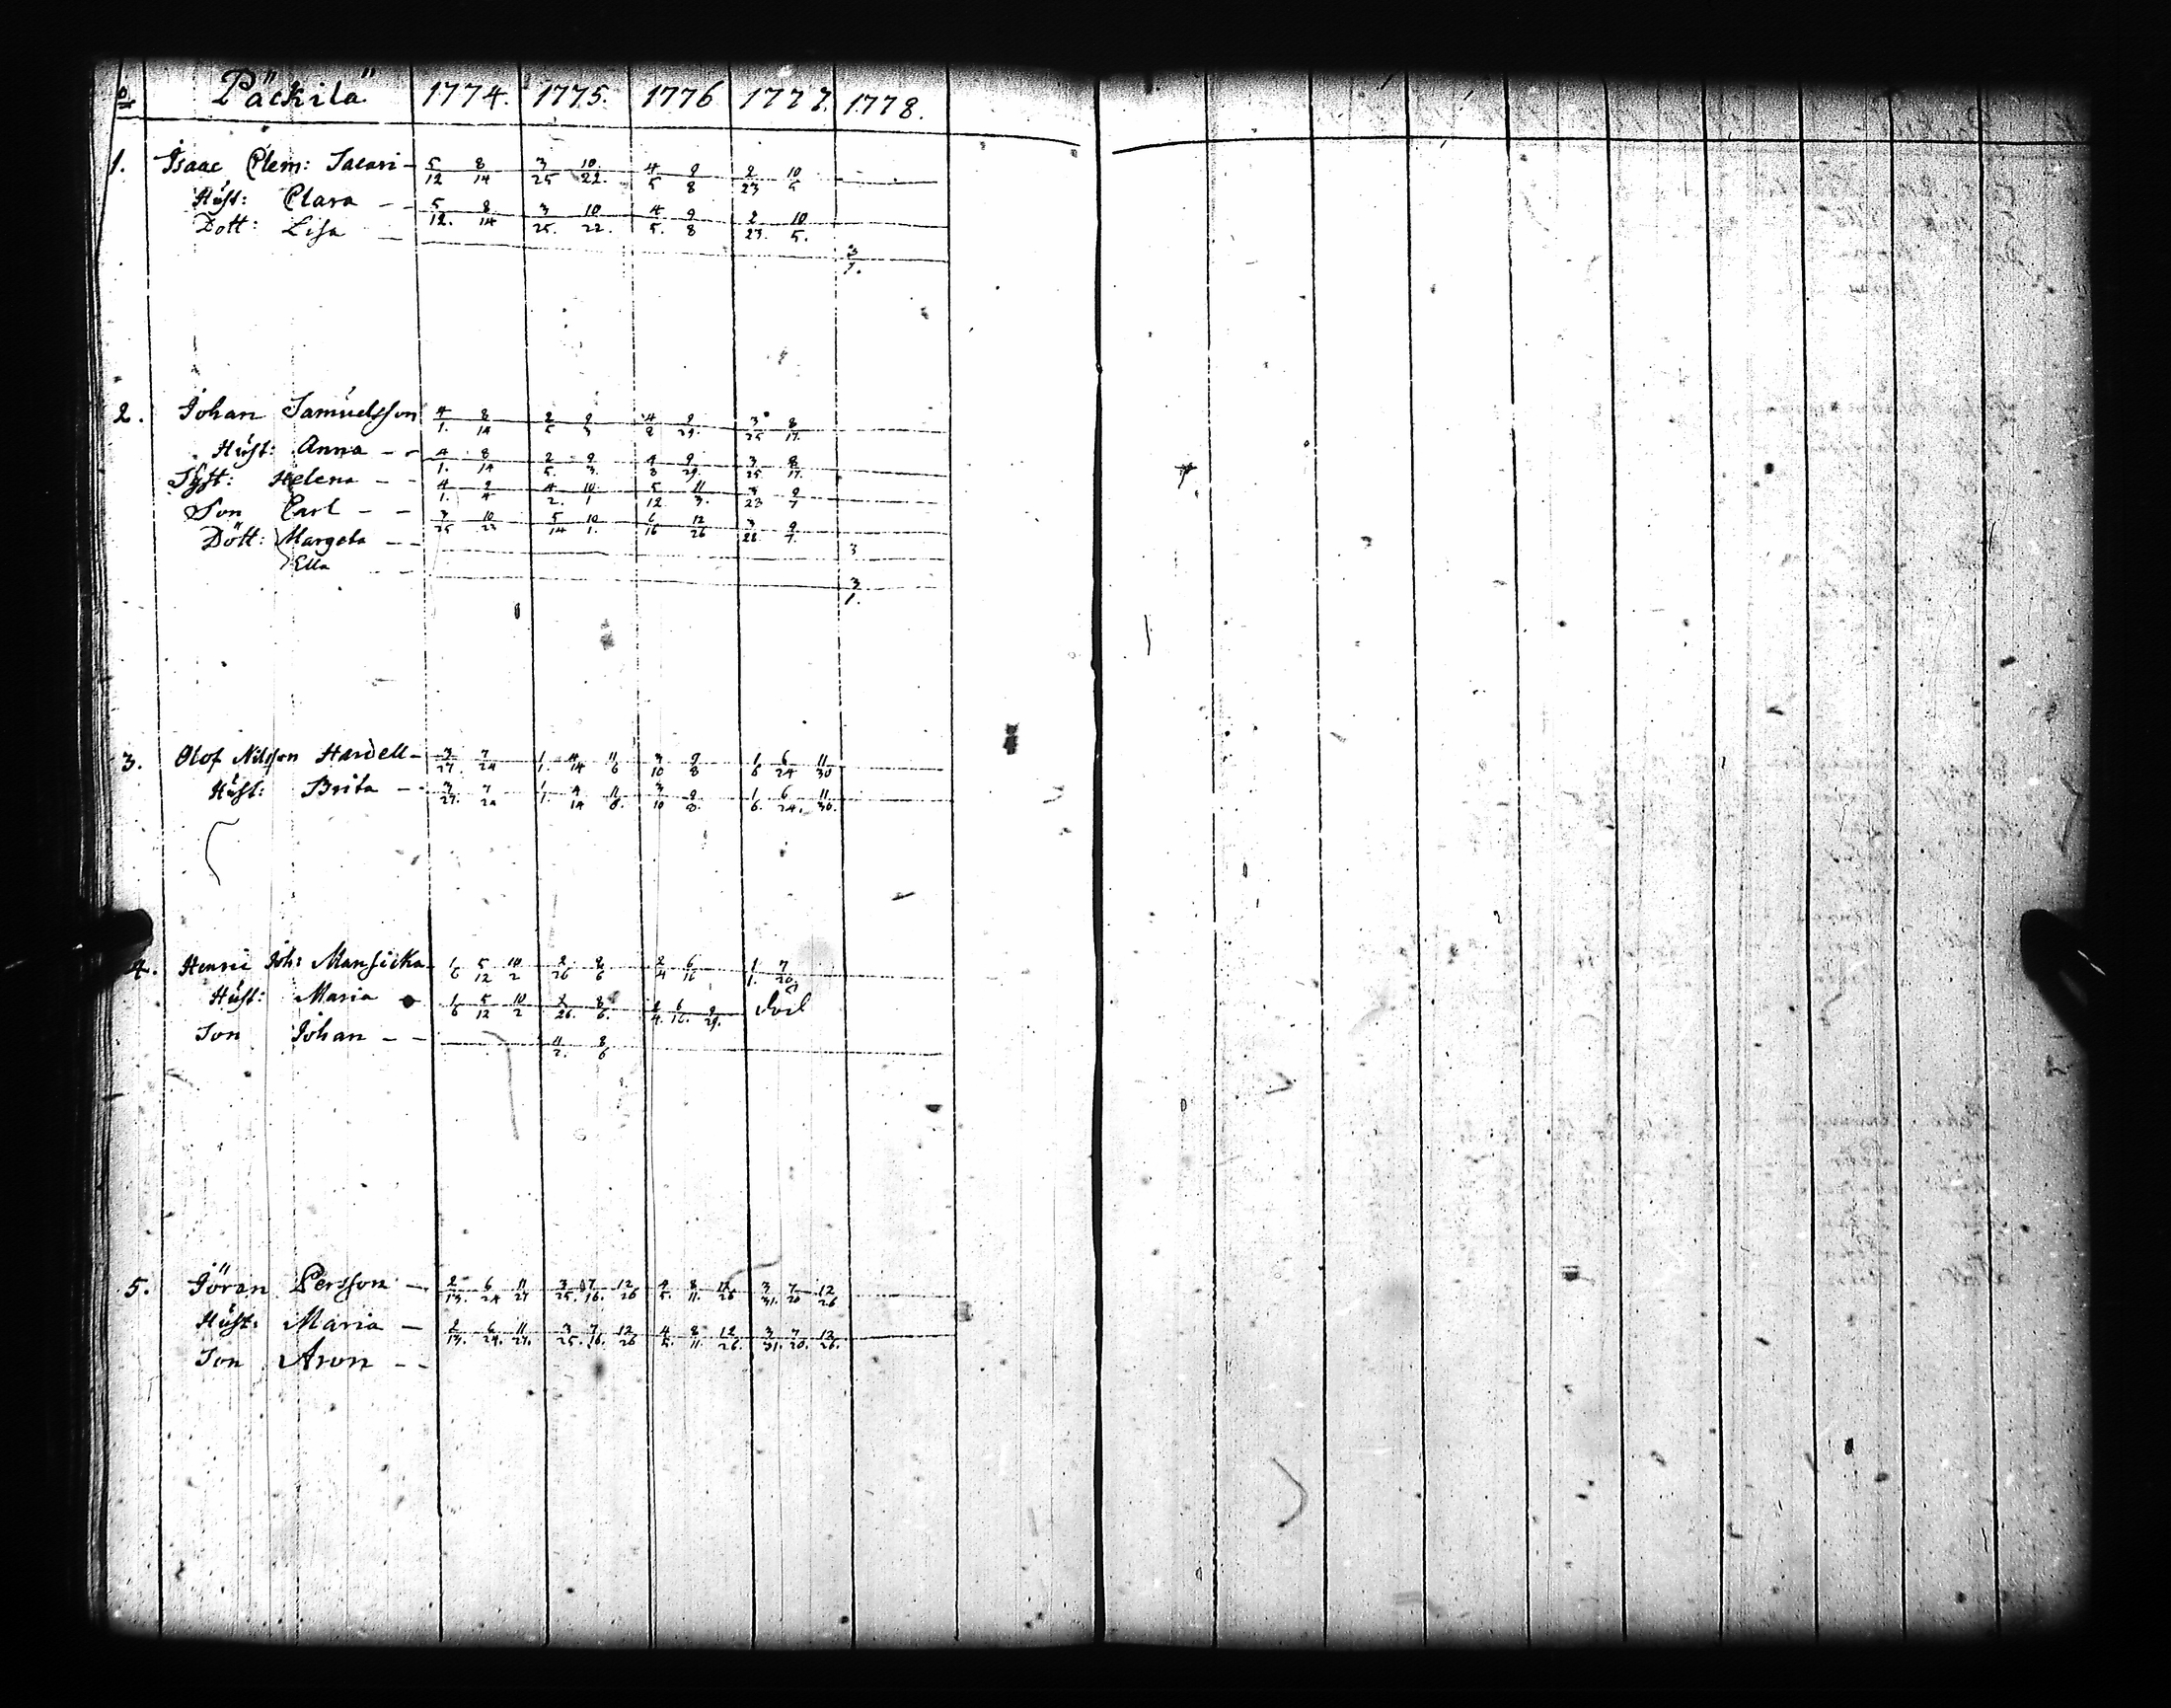 Päckilä 1774. 1775. 1776 1777. 1778.
1. Isaac Clem: Sacari - 5/12 8/14 3/25 10/22. 4/5 9/8 2/23 10/5
Hust: Clara - - 5/12. 8/14 3/25. 10/22. 4/5. 9/8 2/23. 10/5.
Dott: Lisa - 3/1.
2. Johan Samuelsson 4/1. 8/14 2/5 9/3 4/8 9/29. 3/25 8/17.
Hust: Anna - - 4/1. 8/14 2/5. 9/3. 4/8 9/29. 3/25 8/17.
Syst: Helena - - 4/1. 9/4 4/2. 10/1 5/12 11/3. 3/23 9/7
Son Carl - - 3/25 10/23 5/14 10/1. 6/16 12/26 9/7.
Dött: Margeta - - 3
Ella - 3/1.
3. Olof Nilsson Hardell - 3/27. 7/24 1/1. 4/14 11/6 3/10 9/8 1/6 6/24 11/30
Hust: Brita - - 3/27. 7/24 1/1. 4/14 11/6. 3/10 9/8. 1/6. 6/24. 11/30.
4. Henric Joh: Mansicka 1/6 5/12 10/2 2/26 8/6 2/4 6/16 1/1. 7/20
Hust: Maria 1/6 5/12 10/2 2/26. 8/6. 2/4. 6/16. 9/29. död
Son Johan - - 11/2. 8/6
5. Jöran Persson - 2/13. 6/24 11/27 3/25. 7/16. 12/26 4/5. 8/11. 12/26 3/31. 7/20 12/26
Hust: Maria - 2/13. 6/24. 11/27. 3/25. 7/16. 12/26 4/5. 8/11. 12/26. 3/31. 7/20. 12/26.
Son Aron - -